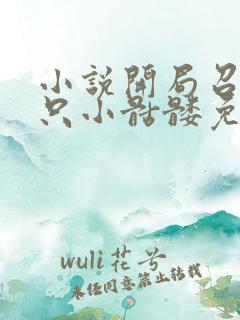 小說開局召
只小骷髏免
wuli花兮
未径同意禁止转载